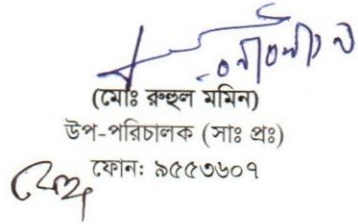 (মোঃ রুহুল মমিন)
উপ-পরিচালক (সাঃ প্রঃ)
ফোন: ৯৫৫৩৬০৭